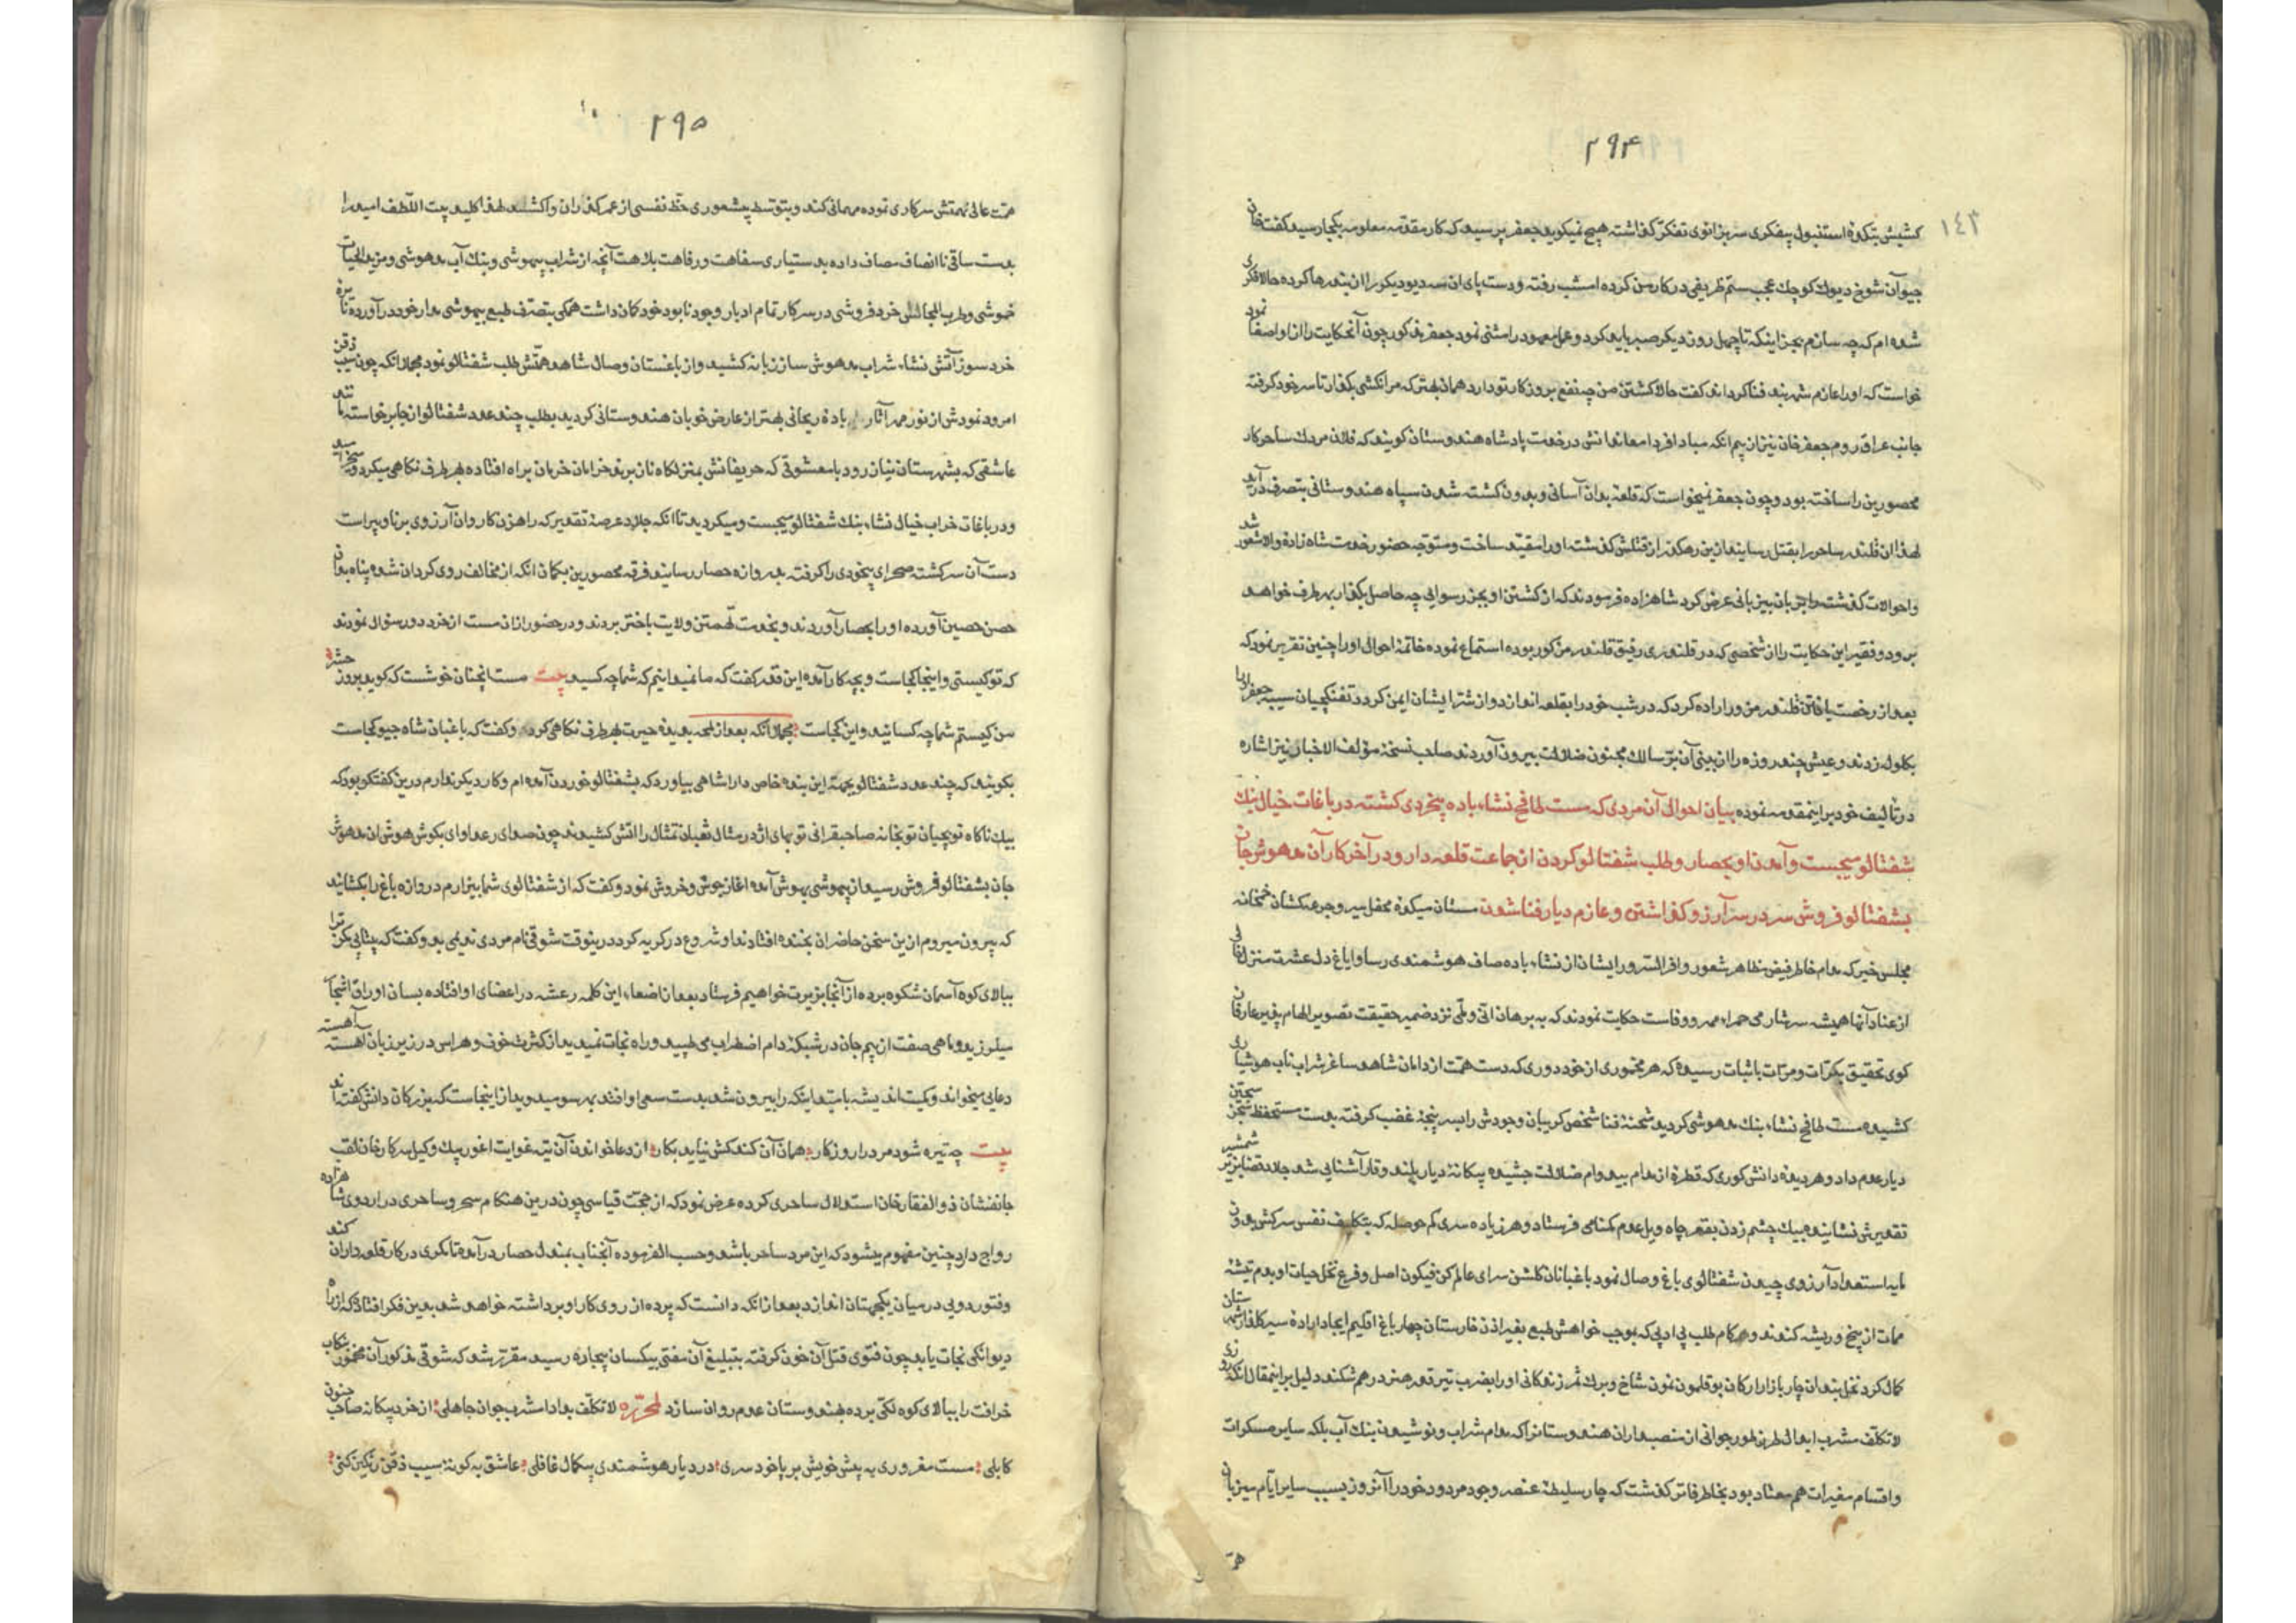 ۲۹۴
۱۴۳
کشیش بتکدۀ استنبول بیفکری سر بزانوی تفکر گذاشته هیچ نمیگوید جعفر پرسید که کار مقدمه معلومه بکجا رسید گفت خان
جیوآن شوخ دیوک کوچک عجب ستم ظریفی در کار من کرده امشب رفته و دست پای ان سه دیو دیگر را از بند رها کرده حالا فکری
شده ام که چه سازم بجز اینکه تا چهل روز دیگر صبر باید کرد و عمل معهود را مثنی نمود جعفر مذکور چون آنحکایت را ازو اصغا نمود
خواست که اورا عازم شهربند فنا گرداند گفت حالا کشتن من چه نفع بروزگار تو دارد همان بهتر که مرا نکشی بگذار تا سر خود گرفته
جانب عراق روم جعفر خان نیز از بیم انکه مبادا فردا معاندانش در خدمت پادشاه هندوستان گویند که فلان مردک ساحر کار
محصورین را ساخته بود و چون جعفر نمیخواست که قلعه بدان آسانی و بدون کشته شدن سپاه هندوستانی بتصرف درآید
لهذا ان قلندر ساحر را بقتل رسانید ازین رهگذر از قتلش گذشته اورا مقید ساخت و متوجه حضور خدمت شاه زادۀ والا شعور شد
واحوالات گذشته را بزبان بیزبانی عرض کرد شاهزاده فرمودند که از کشتن او بجز رسوایی چه حاصل بگذار بهر طرف خواهد
برود و فقیر این حکایت را از شخصی که در قلندری رفیق قلندر مذکور بوده استماع نموده خاتمۀ احوال اورا چنین تقریر نمود که
بعد از رخصت یافتن قلندر مزور اراده کرد که در شب خود را بقلعه اندازد و از شر ایشان ایمن گردد تفنگچیان سیبه جعفر اورا
بگلوله زدند و عیش چند روزه را از بینی آن سالک مجنون ضلالت بیرون آوردند صاحب نسخۀ مؤلف الاخبار نیز اشاره
در تألیف خود براینمقدمه نموده بیان احوال آن مردی که مست طافح نشاء باده بیخردی گشته در باغات خیال بنک
شفتالو میجست و آمدن او بحصار و طلب شفتالو کردن از جماعت قلعه دار و در آخر کار آن مدهوش جان
بشفتالو فروش سر در سر آرزو گذاشتن و عازم دیار فنا شدن مستان میکدۀ محفل سیر و جرعه کشان خمخانه
مجلس خبر که مدام خاطر فیض مظاهر شعور وافر السرور ایشان از نشاء باده صاف هوشمندی رسا و ایاغ دل عشرت منزل
از عناد آنها همیشه سرشار می حمراء مهر و وفاست حکایت نمودند که به برهان انی و لمی نزد ضمیر حقیقت تصویر الهام پذیر عارفان
کوی تحقیق بکرات و مرات باثبات رسیده که هر مخموری از خود دوری که دست همت از دامان شاهد ساغر شراب ناب هوشیاری
کشیده مست طافح نشاء بنک مدهوشی گردید شحنۀ فنا شخص گریبان وجودش را بسرپنجۀ غضب گرفته بدست مستحفظ سجین
دیار عدم داد و هر دیدۀ دانش کوری که قطرۀ از مدام بیدوام ضلالت چشیده بیکانۀ دیار پلند و قار آشنایی شد جلاد قضا بزیر شمشیر
تقدیرش نشانیده بیک چشم زدن بقعر چاه ویل عدم گمنامی فرستاد و هر زیاده سری کم حوصله که بتکلیف نفس سرکش بدون
مایه استعداد آرزوی چیدن شفتالوی باغ وصال نمود باغبانان گلشن سرای عالم کن فیکون اصل و فرع نخل حیات او بدم تیشه
ممات از بیخ و ریشه کندند و هر کام طلب بی ادبی که بموجب خواهش طبع بغیر اذن خارستان چهار باغ اقلیم ایجاد ارادۀ سیر
کمال کرد نخل بندان چار بازار ارکان بوقلمون نمون شاخ و برک ثمر زندگانی او را بضرب تیر قدر هنر درهم شکنند دلیل براینمقال انکه
لا تکلف مشرب ابدال طرز طور جوانی از منصبداران هندوستان را که مدام شراب و نوشیدن بنک آب بلکه سایر مسکرات
و اقسام مغیرات هم معتاد بود بخاطر فاتر گذشت که چار سلیطۀ عنصر وجود مردود خود را آنروز بسبب سایر ایام میزبان
همت
۲۹۵
همت عالی نهمتش سرکاری نموده مهمانی کند و بتوسط بیشعوری حظ نفسی از عمر گذران واکشد لهذا کلید بیت اللطف امید را
بدست ساقی ناانصاف مصاف داده بدستیاری سفاهت و رفاهت بلاهت آنچه از شراب بیهوشی و بنک آب مدهوشی و مزید الحیات
خموشی و طرب المجالس خرد فروشی در سرکار تمام ادبار وجود نابود خود گمان داشت همگی بتصرف طبع بیهوشی مدار خود درآورده تا
خرد سوز آتش نشاء شراب مدهوش ساز زبانه کشید و از باغستان وصال شاهد همتش طلب شفتالو نمود مجملا انکه چون سیب ذقن
امرود نمودش از نور مهر آثار بادۀ ریحانی بهتر از عارض خوبان هندوستانی گردید بطلب چند عدد شفتالو از جا برخواسته مانند
عاشقی که بشهرستان نیاز رود یا معشوقی که حریفانش بمنزلگاه ناز برند خرامان خرمان براه افتاده بهر طرف نگاهی میکرد و میخرامید
و در باغات خراب خیال نشاء بنک شفتالو میجست و میگردید تا انکه جلاد عرصۀ تقدیر که راهزن کاروان آرزوی برنا و پیر است
دست آن سرگشته صحرای بیخودی را گرفته بدروازه حصار رسانید فرقه محصورین بگمان انکه از مخالف روی گردان شده پناه بدان
حصن حصین آورده او را بحصار آوردند و بخدمت تهمتن ولایت باختر بردند و در حضور ازان مست از خرد دور سؤال نمودند
که تو کیستی و اینجا کجاست و بچه کار آمده این قدر گفت که ما نمیدانیم که شما چه کسید بیت مست انچنان خوشست که گوید بروز حشر
من کیستم شما چه کسانید و این کجاست مجملا انکه بعد از لمحه بدیدۀ حیرت بهر طرف نگاهی کرده و گفت که باغبان شاه جیو کجاست
بگویند که چند عدد شفتالو بجهة این بندۀ خاص دارا شاهی بیاورد که بشفتالو خوردن آمده ام و کار دیگر ندارم درین گفتگو بود که
بیک ناگاه توپچیان توپخانه صاحبقرانی توپهای اژدر مثال ثعبان تمثال را اتش کشیدند چون صدای رعد اوای بگوش هوش ان مدهوش
جان بشفتالو فروش رسید از بیهوشی بهوش آمده اغاز جوش و خروش نمود و گفت که از شفتالوی شما بیزارم دروازه باغ را بکشایند
که بیرون میروم ازین سخن حاضران بخنده افتادند او شروع در گریه کرد درینوقت شوقی نام مردی ندیمی بود گفت که بیتابی مکن ترا
ببالای کوه آسمان شکوه برده از آنجا بزیرت خواهیم فرستاد بعد از اصغاء این کلمه رعشه در اعضای او افتاده بسان اوراق اشجار
میلرزید و ماهی صفت از بیم جان در شبکۀ دام اضطراب می طپید و راه نجات نمیدید از کثرت خوف و هراس در زیر زبان آهسته آهسته
دعایی میخواند و کمیت اندیشه بامید اینکه را بیرون شد بدست سعی او افتد بهر سو میدوید از اینجاست که بزرگان دانش گفته اند
بیت چه تیره شود مرد را روزگار همان آن کند کش نیاید بکار از دعا خواندن آن تیه غوایت اغور بیک وکیل سرکار خان لقب
جانفشان ذوالفقار خان استدلال ساحری کرده عرض نمود که از حجت قیاسی چون درین هنگام سحر و ساحری در اردوی شاهزاده
رواج دارد چنین مفهوم میشود که این مرد ساحر باشد و حسب الفرموده آنجناب بمندل حصار درآمده تا مکری در کار قلعه داران کند
و فتور دویی در میان یکجهتان اندازد بعد از انکه دانست که پرده از روی کار او برداشته خواهد شد بدین فکر افتاد که از راه
دیوانگی نجات یابد چون فتوی قتل آن خون گرفته بتبلیغ آن مفتی بیکسان بیچاره رسید مقرر شد که شوقی مذکور آن مخمور
خرافت را ببالای کوه لکی برده بهندوستان عدم روان سازد لمحرره لا تکلف بدادا مشرب جوان جاهلی از خرد بیکانه صاحب جنون
کابلی مست مغروری به پیش خویش بر پا خود سری در دیار هوشمندی بیکمال غافلی عاشق به گونۀ سیب ذقن رنگین کنی